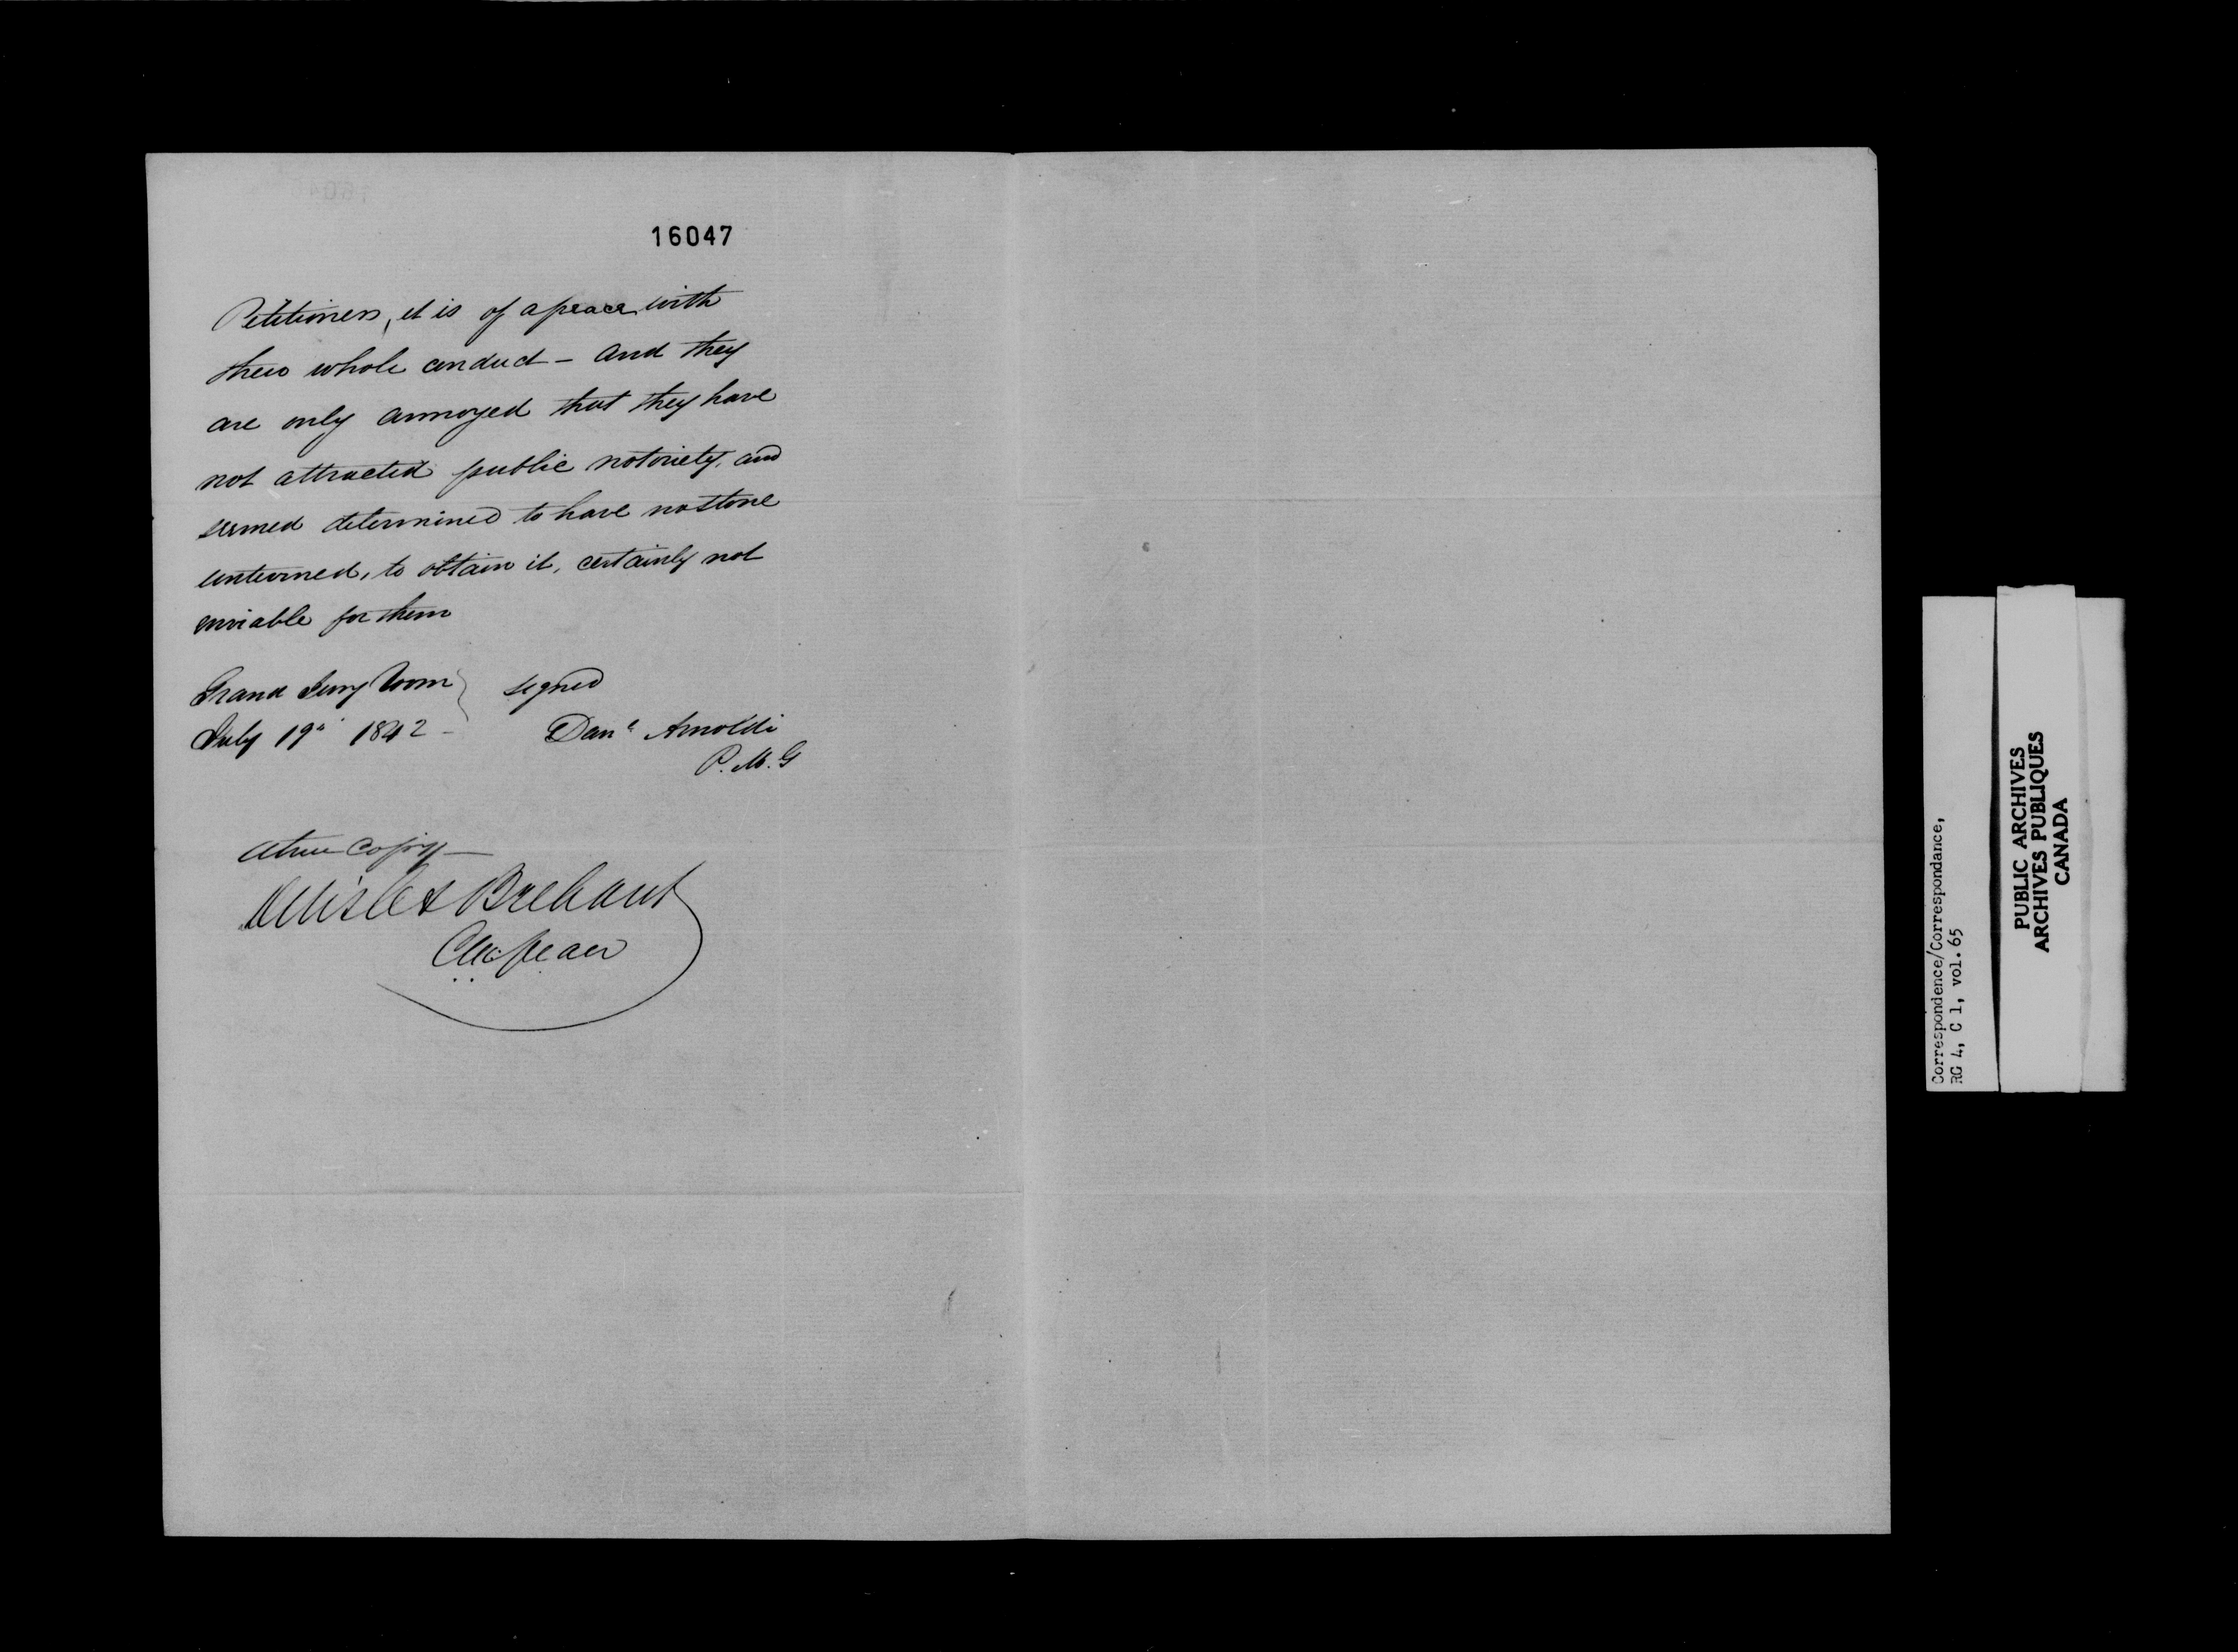 16047
Petitioners, it is of a peace with
their whole conduct – and they
are only annoyed that they have
not attracted public notoriety, and
seemed determined to have no stone
unturned, to obtain it, certainly not
enviable for them
Grand Jury Room } signed
July 19th 1842 – Danl Arnoldi
P. M. G
a true Copy –
Delisle & Brehaut
Clk Peace
Correspondence/Correspondance,
RG 4, C 1, vol. 65
PUBLIC ARCHIVES
ARCHIVES PUBLIQUES
CANADA